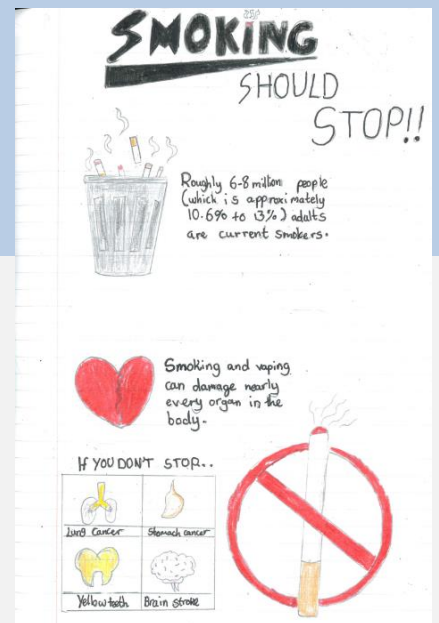 SMOKING
SHOULD
STOP!!
Roughly 6-8 million people
(which is approximately
10.6% to 13%) adults
are current smokers.
Smoking and vaping
can damage nearly
every organ in the
body.
IF YOU DON'T STOP..
Lung Cancer
Stomach cancer
Yellow teeth
Brain stroke